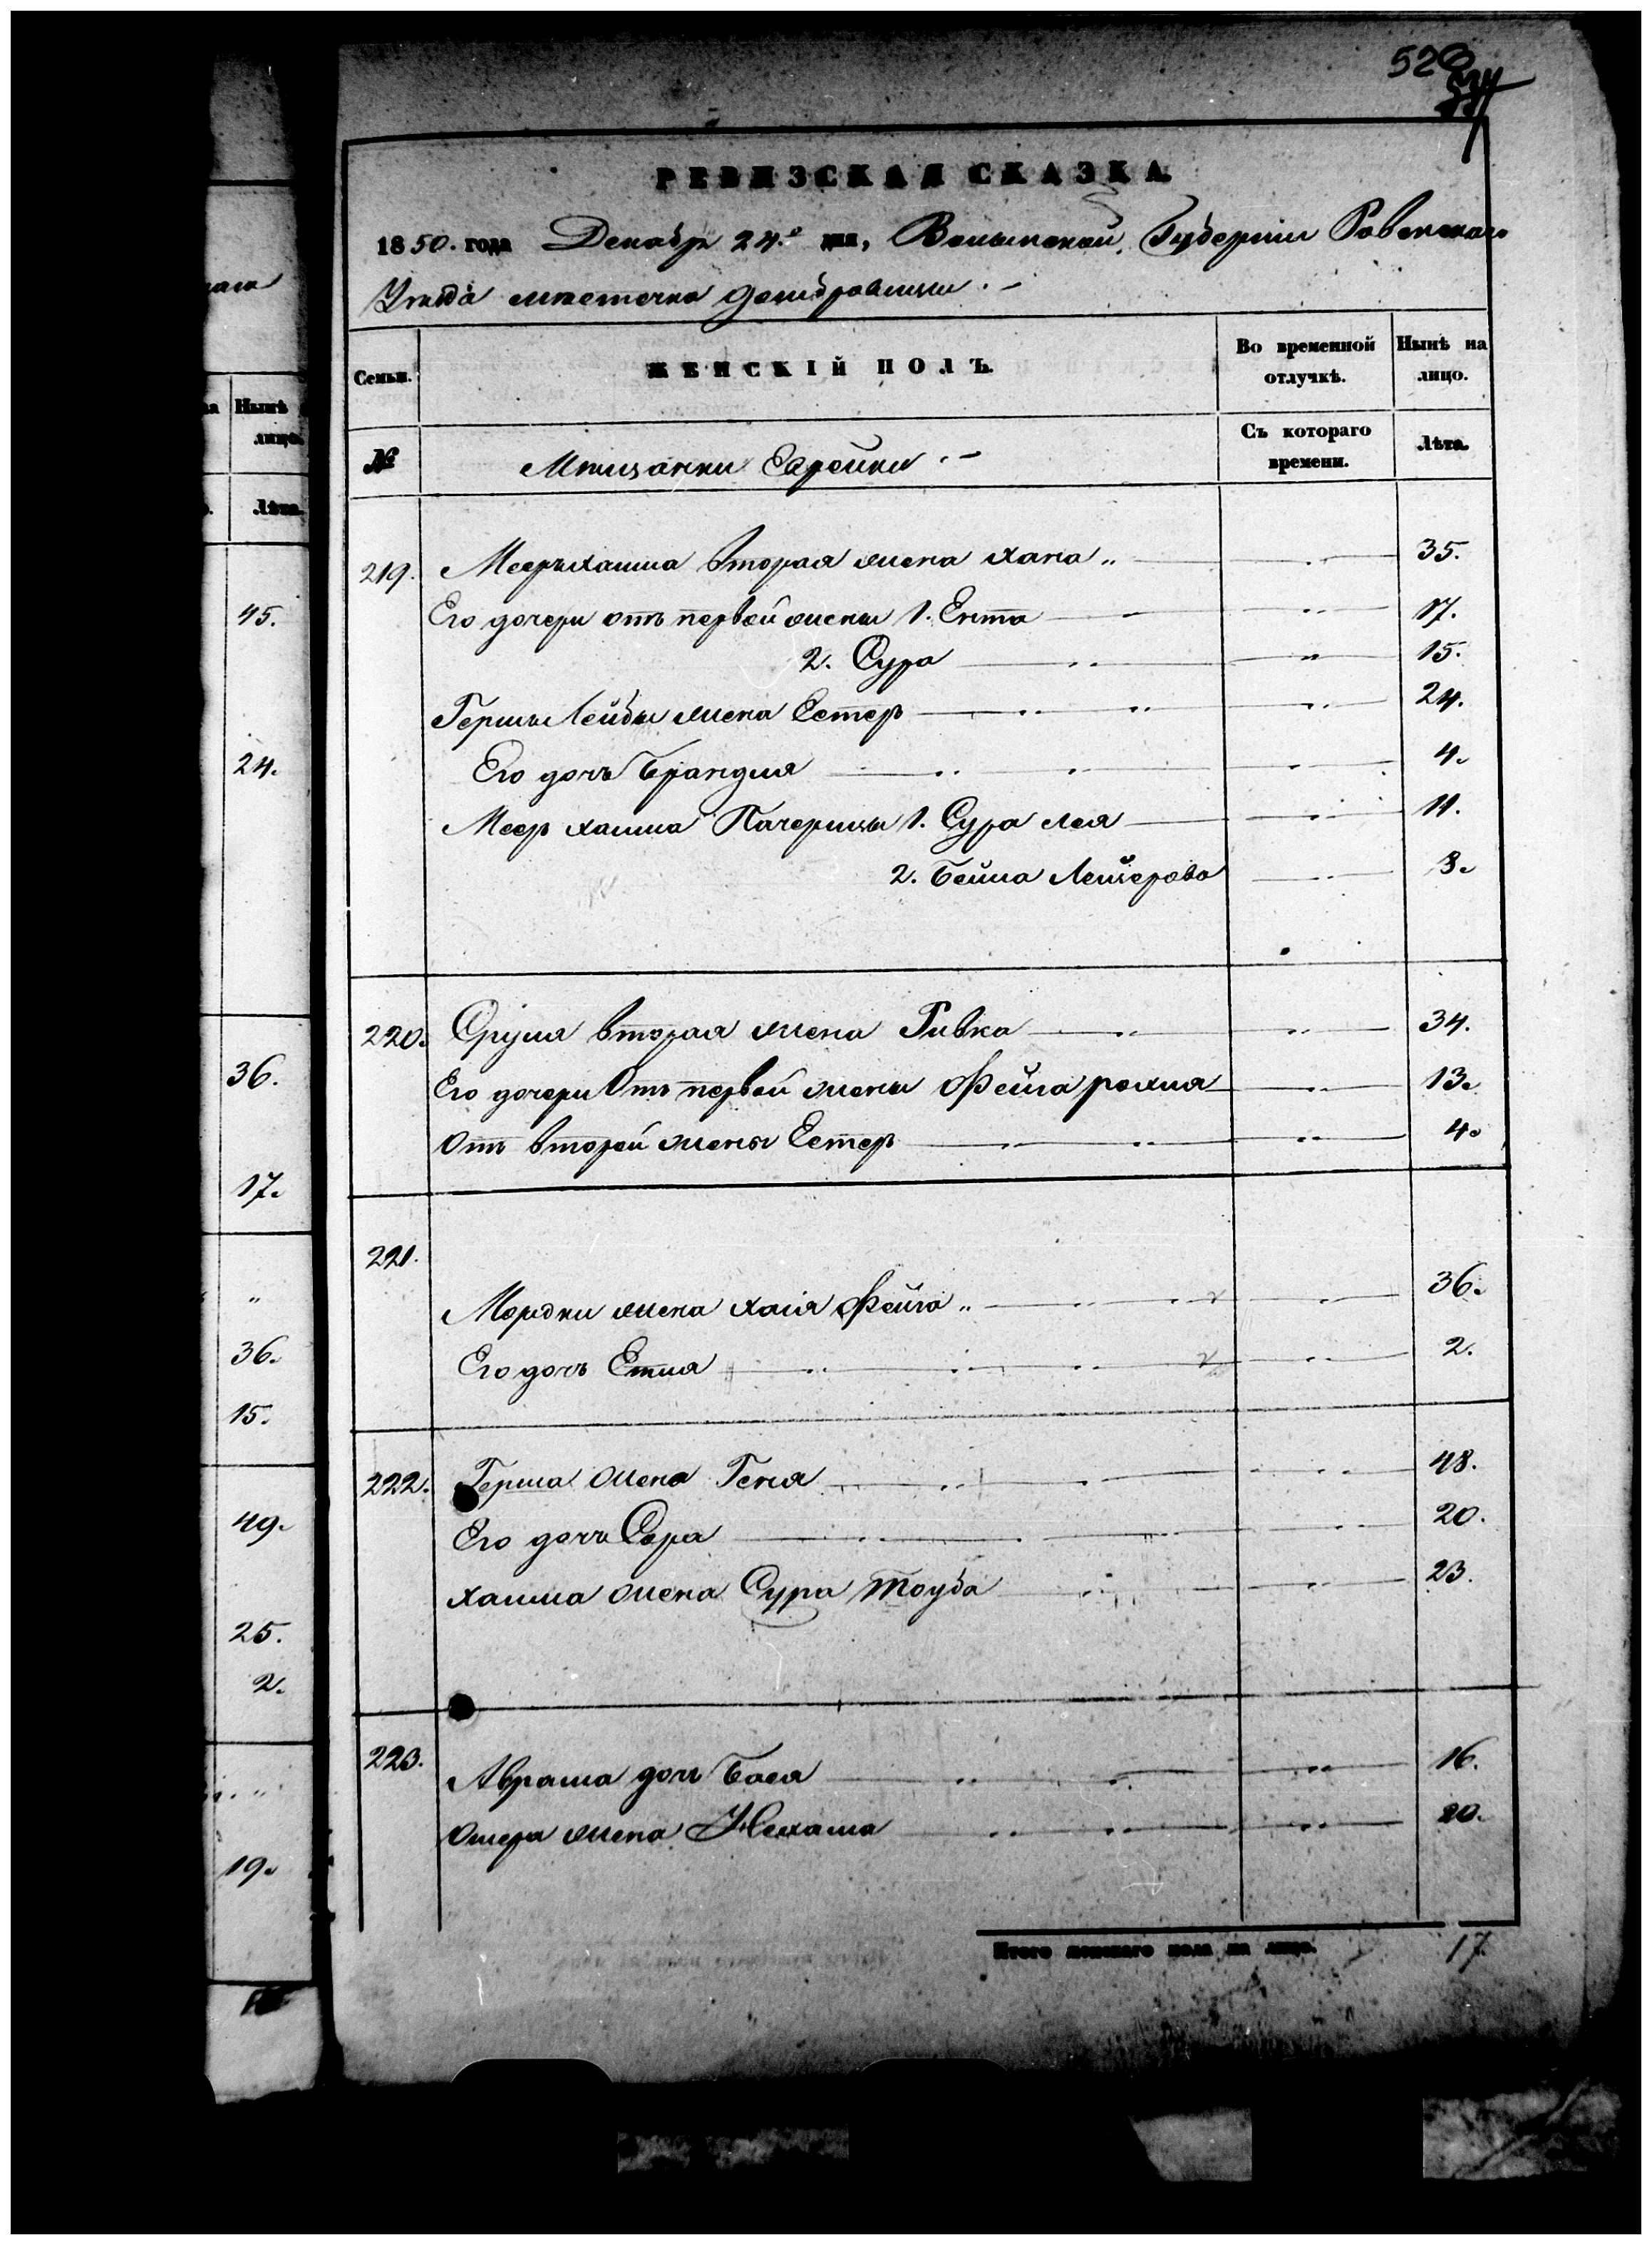 520
РЕВИЗСКАЯ СКАЗКА.
1850. года Декабря 24.го дня, Волынской Губерніи Ровенскаго
Уезда местечка Домбровицы. –
Семьи. ЖЕНСКІЙ ПОЛЪ. Во временной отлучкѣ. Нынѣ на лицо.
№ Мещанки Еврейки. – Съ котораго времени. Лѣта.
219. Меерхаима вторая жена хана „ 35.
Его дочери отъ первой жены 1. Ента 17.
2. Сура 15.
Гершъ Лейбы жена Естер 24.
Его дочь Брандля 4.
Меер хаима Пачерицы 1. Сура лея 11.
2. Бейла Лейзерова 3.
220. Сруля вторая жена Ривка 34.
Его дочери Отъ первой жены Фейга рохля 13.
Отъ второй жены Естер 4.
221.
Мордки жена хаія Фейга „ 36.
Его дочь Етля 2.
222. Герша жена Геня 48.
Его дочь Сора 20.
хаима жена Сура Тоуба 23.
223. Абрама дочь Бася 16.
Ошера жена Нехама 20.
Итого женскаго пола на лицо. 17
Нынѣ
лицо.
Лѣта.
45.
24.
36.
17.
„
36.
15.
49.
25.
2.
19.